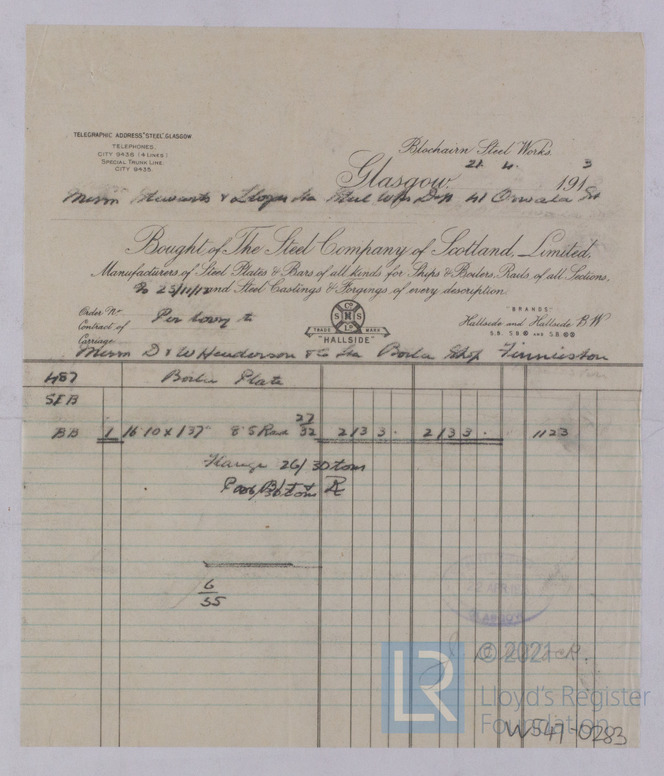 TELEGRAPHIC ADDRESS "STEEL" GLASGOW
TELEPHONES.
CITY 9436 (4 LINES)
SPECIAL TRUNK LINE
CITY 9435.
Blochairn Steel Works.
21 4. 3
Glasgow 191
Messrs Stewarts & Lloyds Ltd Steel Wks Dep 41 Oswald St
Bought of The Steel Company of Scotland, Limited,
Manufacturers of Steel Plates & Bars of all kinds for Ships & Boilers, Rails of all Sections,
25/11/12 and Steel Castings & Forgings of every description.
Order No
Contract of
Carriage
Per lorry to
Co
S M S
Ld
TRADE MARK
"HALLSIDE"
"BRANDS"
Hallside and Hallside B W
S.B. S.B. and S.B.
Messrs D & W Henderson & Co Ltd Boiler Shop Finnieston
487 Boiler Plate
SEB
BB 1 16 10 x 137 8 5 Rad 27/32 2 13 3 . 2 13 3 . 1123
Flange 26/30 tons
6
55
GLASGOW
LR
© 2021
Lloyd's Register
Foundation
W547-0283